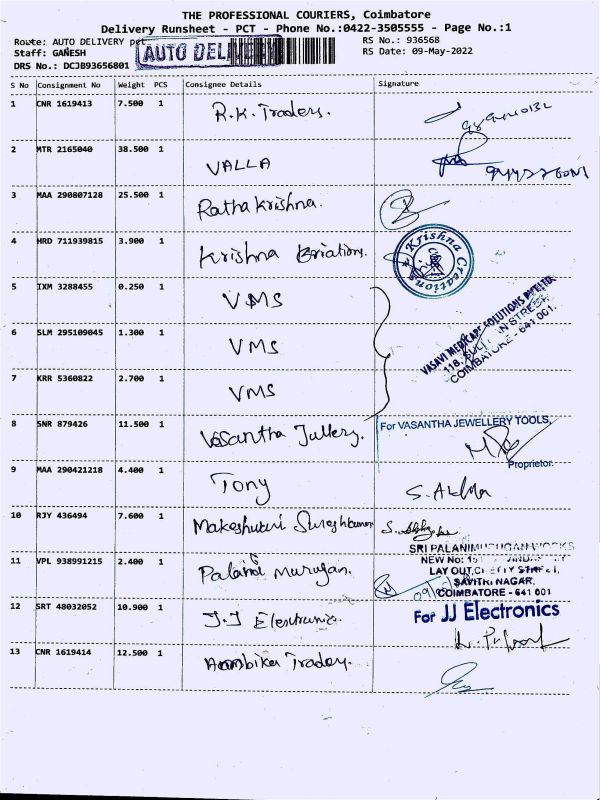 THE PROFESSIONAL COURIERS, Coimbatore
Delivery Runsheet - PCT - Phone No.:0422-3505555 - Page No.:1
Route: AUTO DELIVERY pct
AUTO DELI
RS No.: 936568
Staff: GANESH
RS Date: 09-May-2022
DRS No.: DCJB93656801
S No Consignment No Weight PCS Consignee Details Signature
1 CNR 1619413 7.500 1 R.K. Traders.
2 MTR 2165040 38.500 1 VALLA
3 MAA 290807128 25.500 1 Ratha Krishna.
4 HRD 711939815 3.900 1 Krishna Briations.
Krishna Creations
5 IXM 3288455 0.250 1 VMS
6 SLM 295109045 1.300 1 VMS
VASAVI MEDICARE SOLUTIONS PVT LTD.
118, STREET
COIMBATORE - 641 001.
7 KRR 5360822 2.700 1 VMS
8 SNR 879426 11.500 1 Vasantha Jullery.
For VASANTHA JEWELLERY TOOLS,
Proprietor.
9 MAA 290421218 4.400 1 Tony
10 RJY 436494 7.600 1 Makeshwari Sureshkumar
SRI PALANIMURUGAN WORKS
NEW No:
11 VPL 938991215 2.400 1 Palani Murugan.
LAY OUT, STREET,
SAVITRI NAGAR,
COIMBATORE - 641 001
12 SRT 48032052 10.900 1 J.J Electronic
For JJ Electronics
13 CNR 1619414 12.500 1 Ambika Traders.